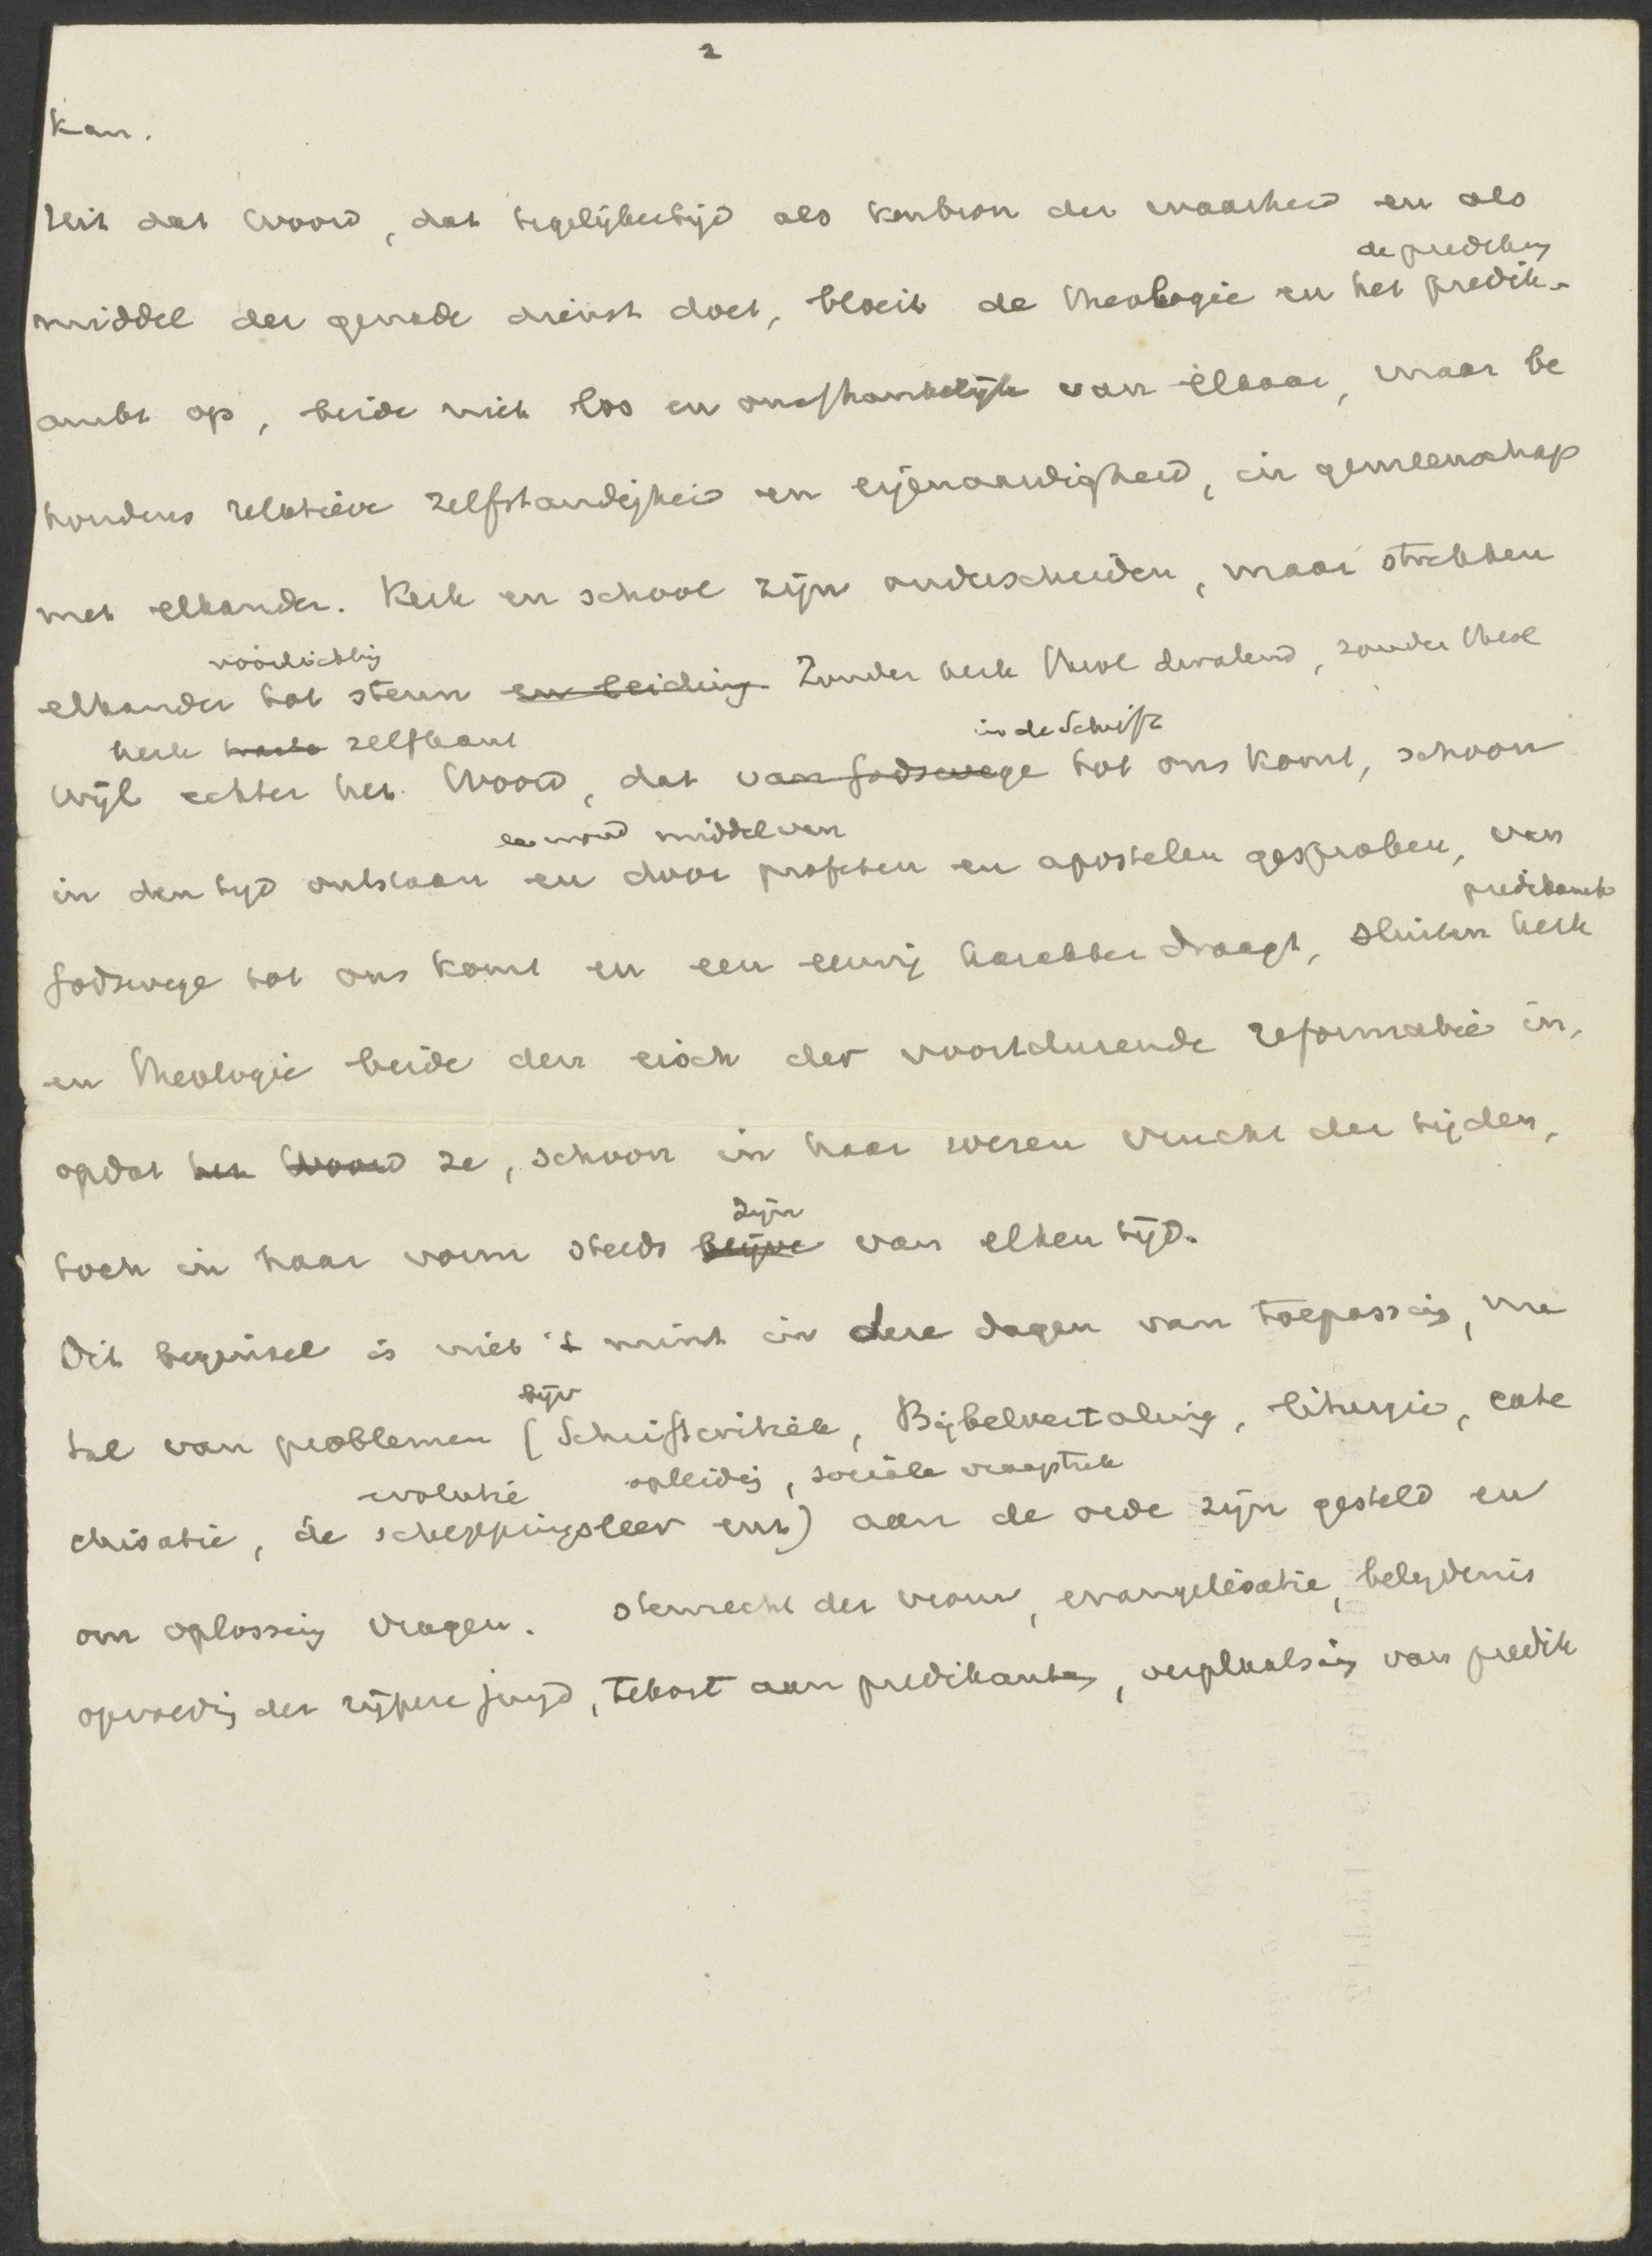 2
kan.
Uit dat Woord, dat tegelijkertijd als kenbron der waarheid en als
de prediking
middel der genade dienst doet, bloeit de theologie en het predik-
ambt op, beide niet los en onafhankelijk van elkaar, maar be
houdens relatieve zelfstandigheid en eigenaardigheid, in gemeenschap
met elkander. Kerk en school zijn onderscheiden, maar strekken
voorlichting
elkander tot steun en leiding. Zonder kerk theol dwalend, zonder theol
kerk zelfkant
in de Schrift
Wijl echter het Woord, dat van Godswege tot ons komt, schoon
middel van
in den tijd ontstaan en door profeten en apostelen gesproken, van
predikambt
Godswege tot ons komt en een eeuwig karakter draagt, sluiten kerk
en theologie beide den eisch der voortdurende reformatie in,
opdat het Woord ze, schoon in haar wezen vrucht der tijden,
zijn
toch in haar vorm steeds blijve van elken tijd.
Dit beginsel is niet 't minst in deze dagen van toepassing, nu
bijv
tal van problemen (Schriftcritiek, Bijbelvertaling, liturgie, cate
evolutie opleidg, sociale vraagstuk
chisatie, de scheppingsleer enz) aan de orde zijn gesteld en
om oplossing vragen. stemrecht der vrouw, evangelisatie, belydenis
opvoedg der rijpere jeugd, tekort aan predikanten, verplaatsing van predik